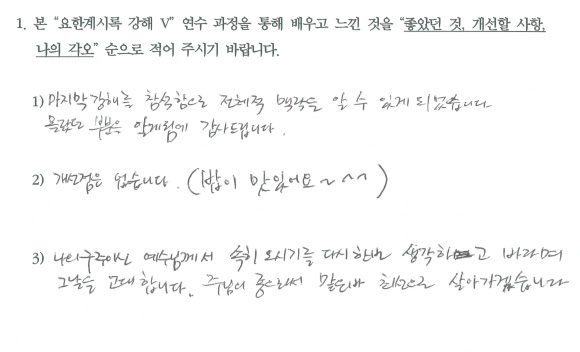 1. 본 “요한계시록 강해 V” 연수 과정을 통해 배우고 느낀 것을 “좋았던 것, 개선할 사항,
나의 각오” 순으로 적어 주시기 바랍니다.
1) 마지막 강해를 참석함으로 전체적 맥락을 알 수 있게 되었습니다
몰랐던 부분을 알게됨에 감사드립니다.
2) 개선점은 없습니다. (밥이 맛있어요~^^)
3) 나의 구주이신 예수님께서 속히 오시기를 다시한번 생각하고 바라며
그날을 고대합니다. 주님의 종으로서 맡은바 최선으로 살아가겠습니다